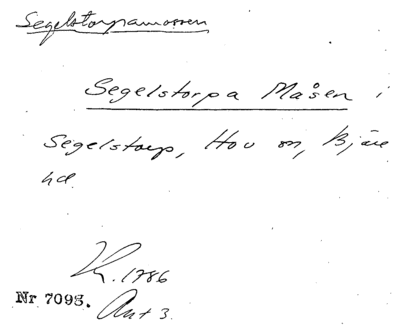 Segelstorpamossen
Segelstorpa Måsen i
Segelstorp, Hov sn, Bjäre
hd.
1786
Nr 7093. Akt 3.